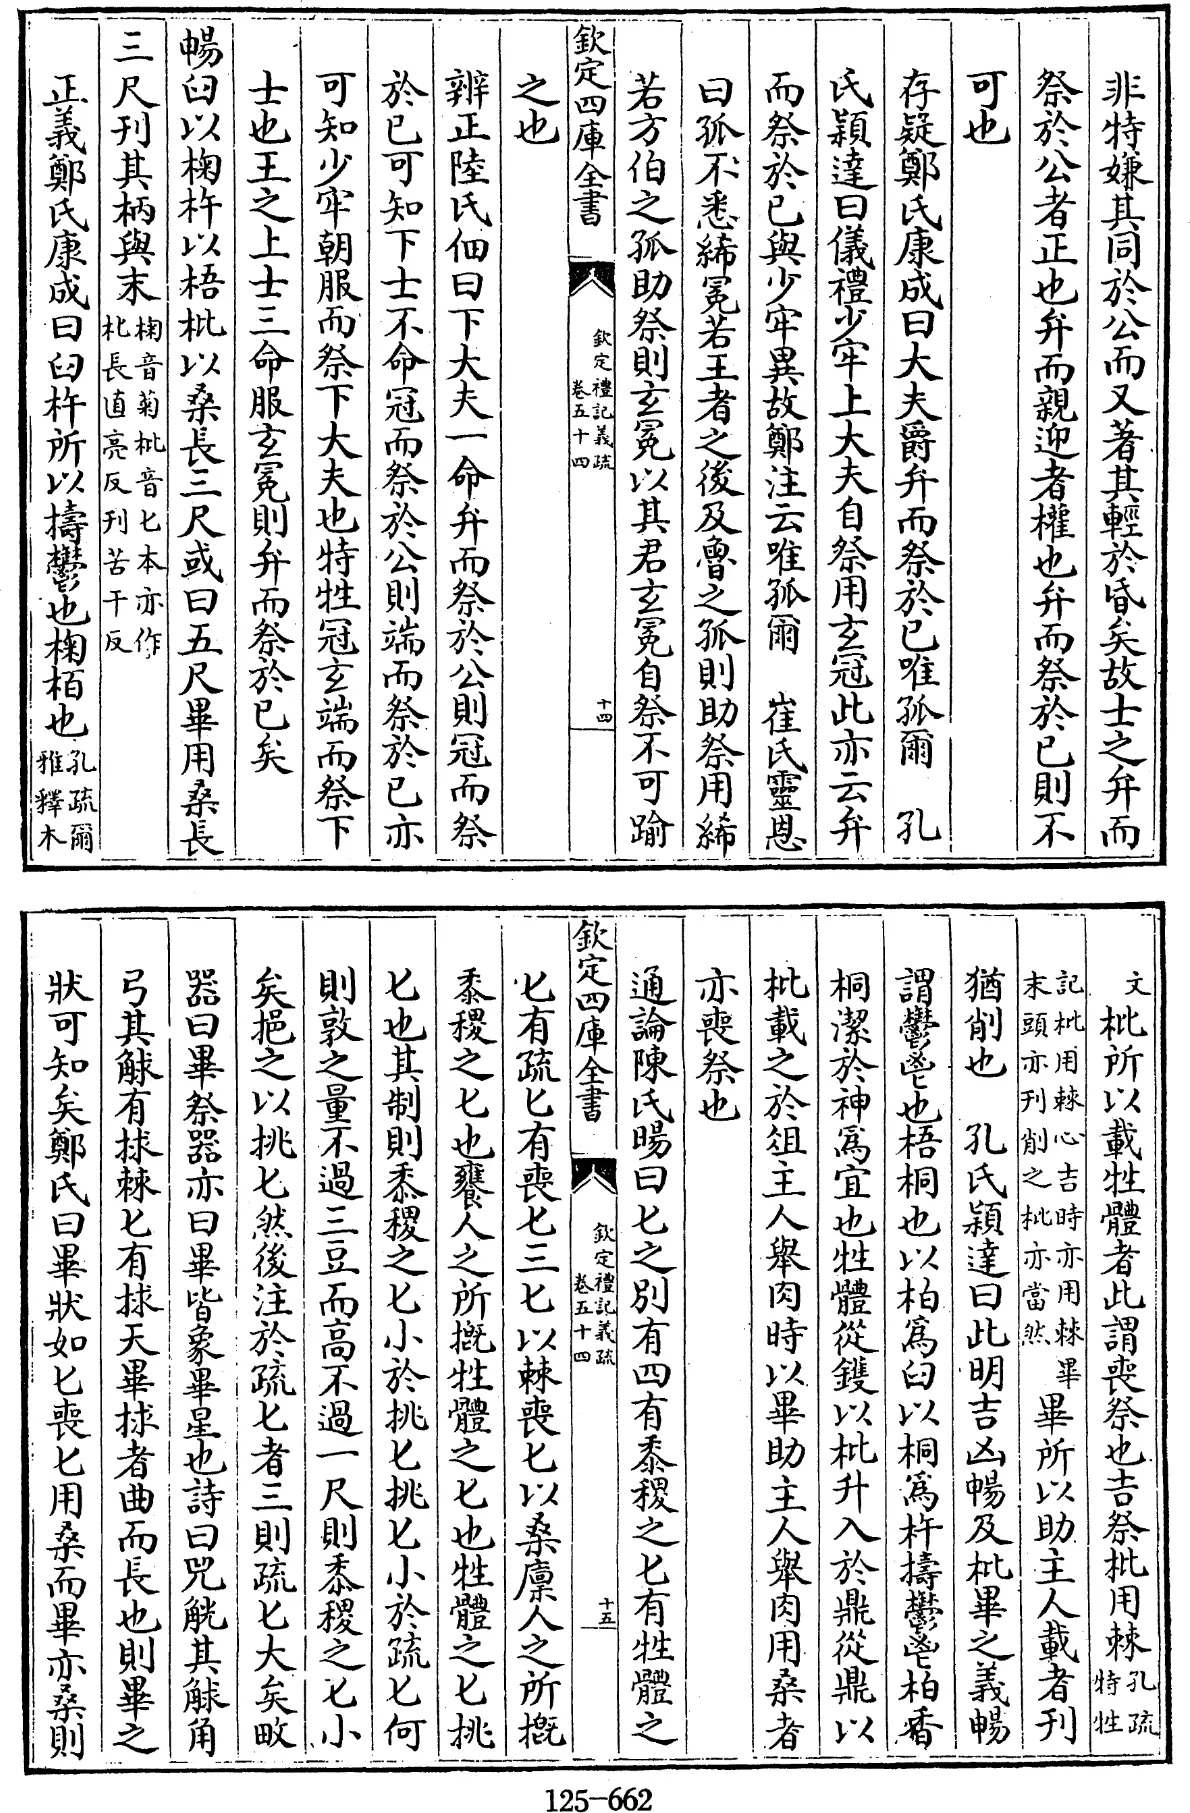 非特嫌其同於公而又著其輕於昏矣故士之弁而
祭於公者正也弁而親迎者權也弁而祭於已則不
可也
存疑鄭氏康成曰大夫爵弁而祭於已唯孤爾 孔
氏穎達曰儀禮少牢上大夫自祭用玄冠此亦云弁
而祭於已與少牢異故鄭注云唯孤爾 崔氏靈恩
曰孤不悉絺冕若王者之後及魯之孤則助祭用絺
若方伯之孤助祭則玄冕以其君玄冕自祭不可踰
之也
欽定四庫全書 欽定禮記義疏 卷五十四 十四
辨正陸氏佃曰下大夫一命弁而祭於公則冠而祭
於已可知下士不命冠而祭於公則端而祭於已亦
可知少牢朝服而祭下大夫也特牲冠玄端而祭下
士也王之上士三命服玄冕則弁而祭於已矣
暢臼以椈杵以梧枇以桑長三尺或曰五尺畢用桑長
三尺刊其柄與末 椈音菊枇音匕本亦作朼長直亮反刊苦干反
正義鄭氏康成曰臼杵所以擣鬱也椈栢也 孔疏爾雅釋木
文 枇所以載牲體者此謂喪祭也吉祭枇用棘 孔疏特牲
記枇用棘心吉時亦用棘畢末頭亦刊削之枇亦當然 畢所以助主人載者刊
猶削也 孔氏穎達曰此明吉凶暢及枇畢之義暢
謂鬱鬯也梧桐也以柏為臼以桐為杵擣鬱鬯柏香
桐潔於神為宜也牲體從鑊以枇升入於鼎從鼎以
枇載之於俎主人舉肉時以畢助主人舉肉用桑者
亦喪祭也
通論陳氏暘曰匕之別有四有黍稷之匕有牲體之
欽定四庫全書 欽定禮記義疏 卷五十四 十五
匕有疏匕有喪匕三匕以棘喪匕以桑廩人之所摡
黍稷之匕也饔人之所摡牲體之匕也牲體之匕挑
匕也其制則黍稷之匕小於挑匕挑匕小於疏匕何
則敦之量不過三豆而高不過一尺則黍稷之匕小
矣挹之以挑匕然後注於疏匕者三則疏匕大矣畋
器曰畢祭器亦曰畢皆象畢星也詩曰兕觥其觩角
弓其觩有捄棘匕有捄天畢捄者曲而長也則畢之
狀可知矣鄭氏曰畢狀如匕喪匕用桑而畢亦桑則
125-662